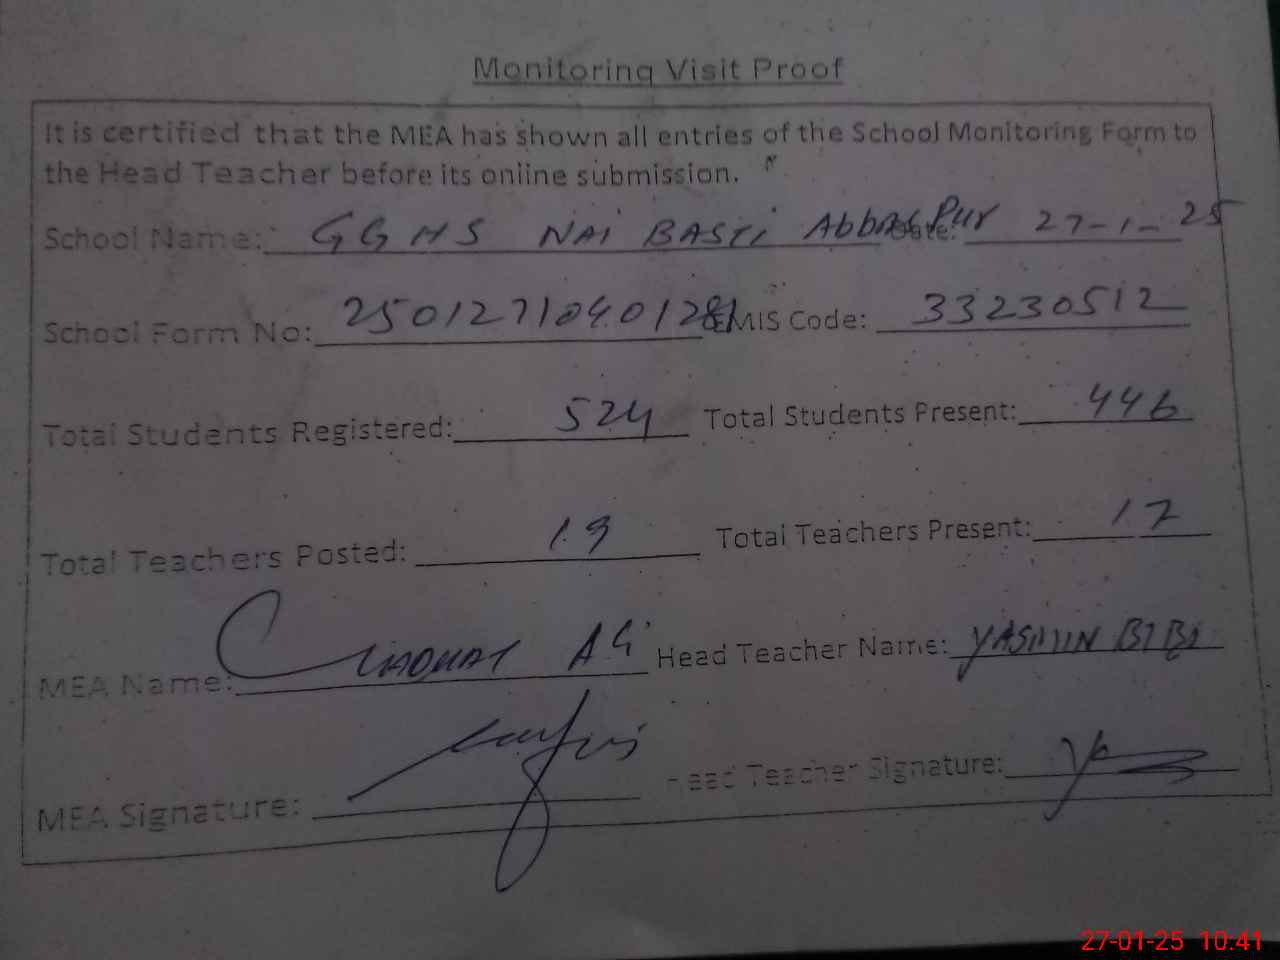 Monitoring Visit Proof
It is certified that the MEA has shown all entries of the School Monitoring Form to
the Head Teacher before its online submission.
School Name: GGHS NAI BASTI Abbas Pur Date: 27-1-25
School Form No: 25012710401281 EMIS Code: 33230512
Total Students Registered: 524 Total Students Present: 446
Total Teachers Posted: 19 Total Teachers Present: 17
MEA Name: Head Teacher Name: YASMIN BIBI
MEA Signature: Head Teacher Signature:
27-01-25 10:41